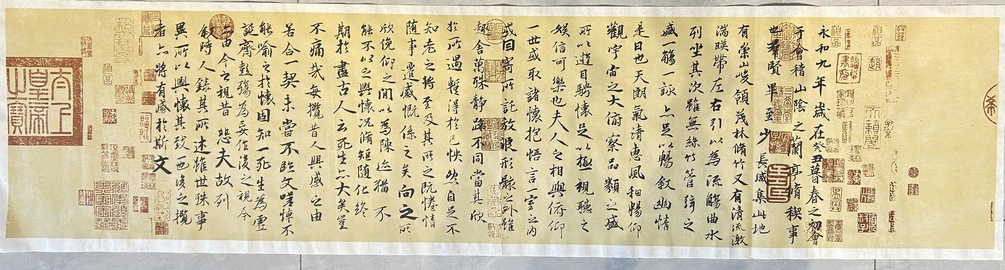 永和九年歲在癸丑暮春之初會
于會稽山陰之蘭亭脩稧事
也羣賢畢至少長咸集此地
有崇山峻領茂林脩竹又有清流激
湍暎帶左右引以為流觴曲水
列坐其次雖無絲竹管弦之
盛一觴一詠亦足以暢敘幽情
是日也天朗氣清惠風和暢仰
觀宇宙之大俯察品類之盛
所以遊目騁懷足以極視聽之
娛信可樂也夫人之相與俯仰
一世或取諸懷抱悟言一室之內
或因寄所託放浪形骸之外雖
趣舍萬殊靜躁不同當其欣
於所遇蹔得於己怏然自足不
知老之將至及其所之既惓情
隨事遷感慨係之矣向之所
欣俛仰之閒以為陳迹猶不
能不以之興懷況脩短隨化終
期於盡古人云死生亦大矣豈
不痛哉每攬昔人興感之由
若合一契未嘗不臨文嗟悼不
能喻之於懷固知一死生為虛
誕齊彭殤為妄作後之視今
亦由今之視昔悲夫故列
敘時人錄其所述雖世殊事
異所以興懷其致一也後之攬
者亦將有感於斯文
太上
皇帝